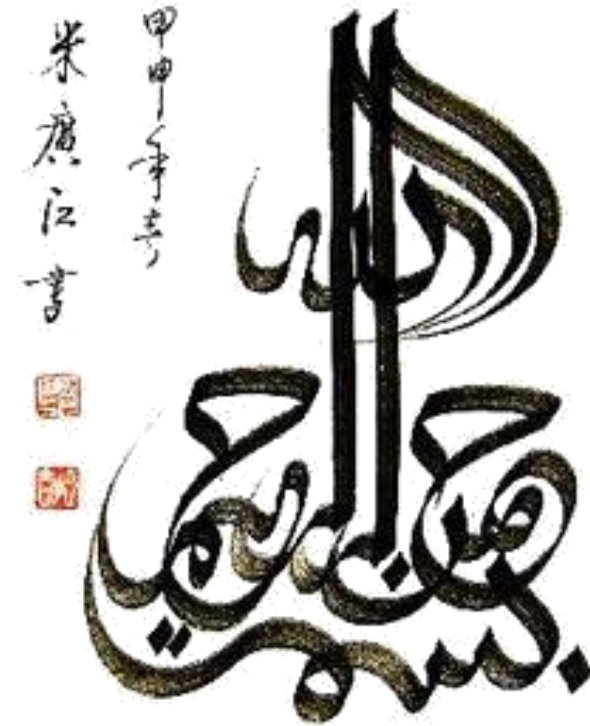 بسم الله الرحمن الرحيم
甲申年春
米廣江書